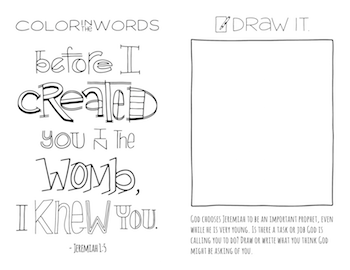 COLOR IN THE WORDS
before I
CREATED
YOU IN THE
WOMB,
I KNEW YOU.
- JEREMIAH 1:5
DRAW IT.
GOD CHOOSES JEREMIAH TO BE AN IMPORTANT PROPHET, EVEN
WHILE HE IS VERY YOUNG. IS THERE A TASK OR JOB GOD IS
CALLING YOU TO DO? DRAW OR WRITE WHAT YOU THINK GOD
MIGHT BE ASKING OF YOU.